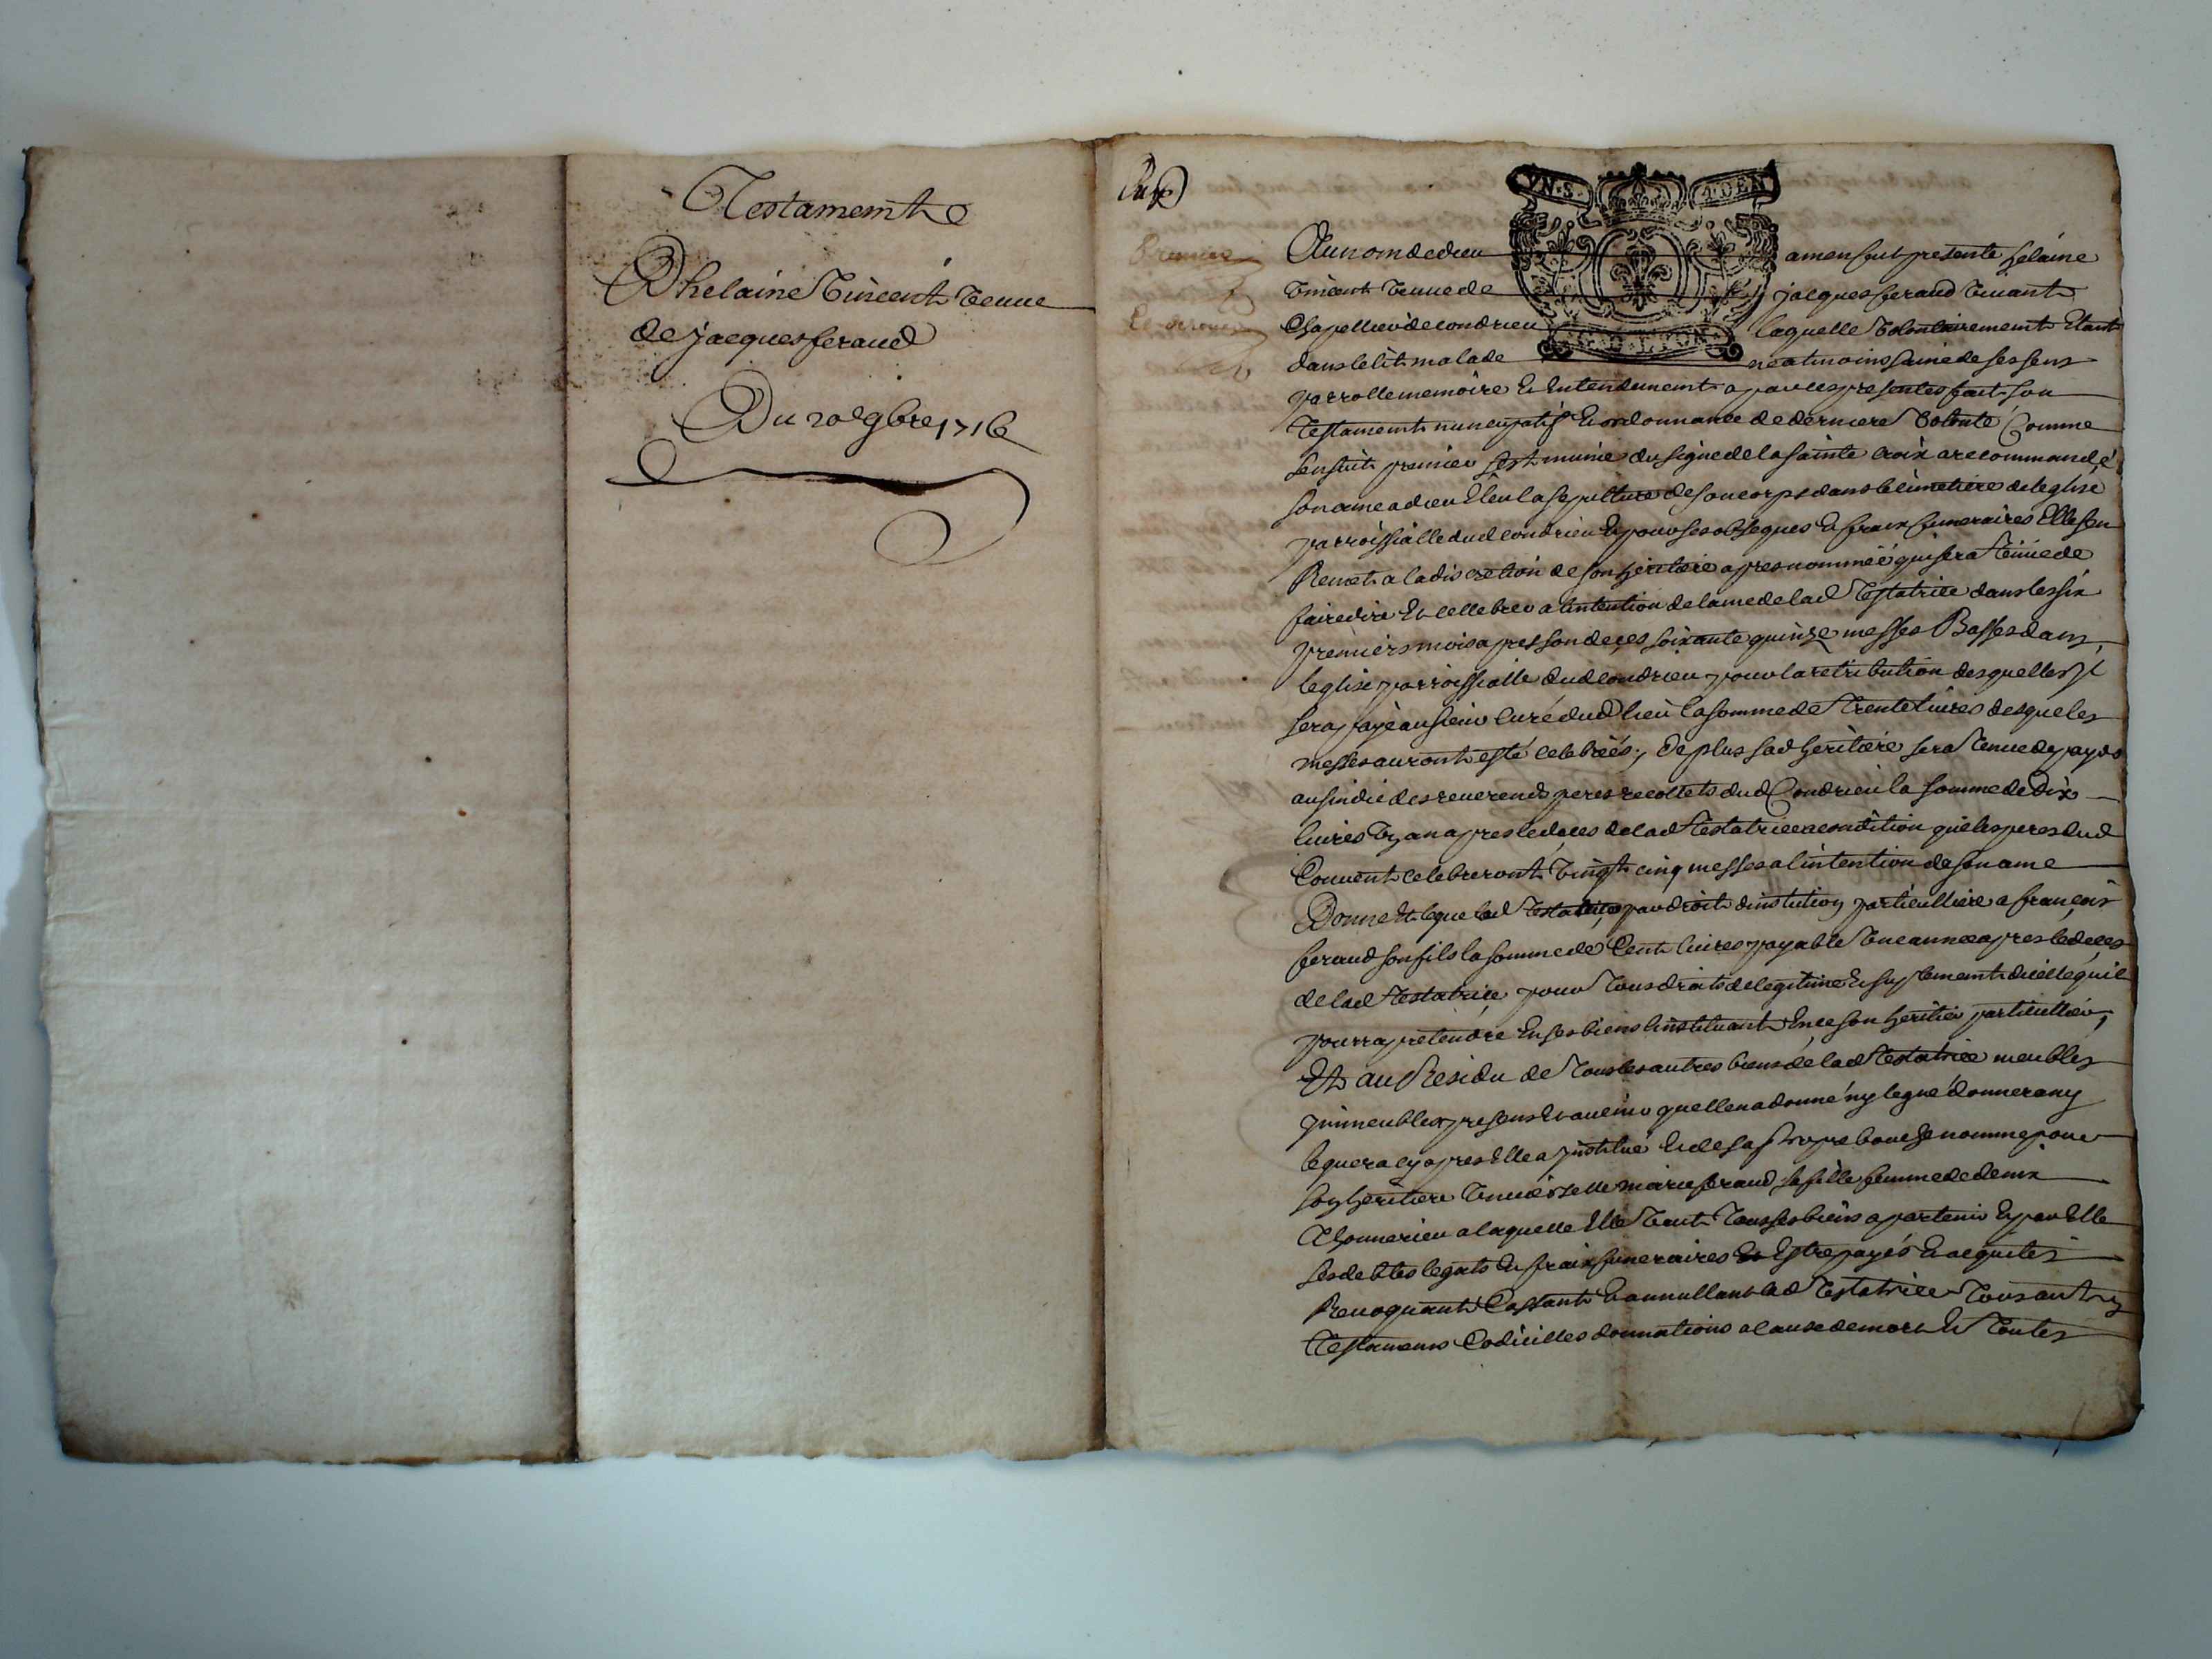 Testament
D'helaine Vincent veuve
de jacques feraud
Du 20e 9bre 1716
VN.S. 4.DEN
G.D.LYON
Au nom de dieu amen fut presente helaine
Vincent veuve de jacques feraud vivant
Chapellier de condrieu laquelle volontairement Etant
dans le lit malade neatmoins saine de ses sens
parrolle memoire et Entendement a par ces presentes fait son
Testament nuncupatif et ordonnance de derniere volonté Comme
sensuit premier sest munie du signe de la sainte croix a recommandé
son ame a dieu Eleu la sepulture de son corps dans le cimetiere de leglise
parroissialle dud condrieu Et pour ses obseques et fraix funeraires Elle sen
Remet a la discretion de son heritiere apres nommée qui sera tenüe de
faire dire Et cellebrer a lintention de lame de lad Testatrice dans les six
premiers mois apres son deces soixante quinze messes Basses dans
leglise parroissialle dud condrieu pour la retribution desquelles jl
sera payé au sieur curé dud lieu la somme de trente livres des que les
messes auront esté celebrées, de plus sad heritiere sera tenue de payer
au sindic des reverends peres recollets dud Condrieu la somme de dix
livres Un an apres le deces de lad testatrice a condition que les peres dud
Couvent celebreront vingt cinq messes a lintention de son ame
Donne et legue lad testatrice par droit dinstitution particulliere a françois
feraud son fils la somme de Cent livres payable une année apres le deces
de lad testatrice pour tous droits de legitime et suplement dicelle quil
pourra pretendre En ses biens linstituant En ce son heritier particullier,
Et au Residu de tous les autres biens de lad testatrice meubles
jmmeubles presens et avenir quelle na donné ny legué donnera ny
leguera cy apres Elle a jnstitué Et de sa propre bouche nomme pour
son heritiere universelle marie feraud sa fille femme de denix
a laquelle Elle veut tous ses biens apartenir Et par Elle
ses debtes legats et fraix funeraires Estre payés et acquités
Revoquant Cassant Et annullant lad Testatrice tous autres
Testamens Codicilles donnations a cause de mort et toutes